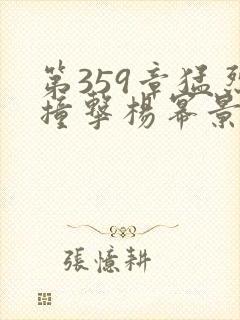 第359章猛烈
撞擊楊冪景
張憶耕